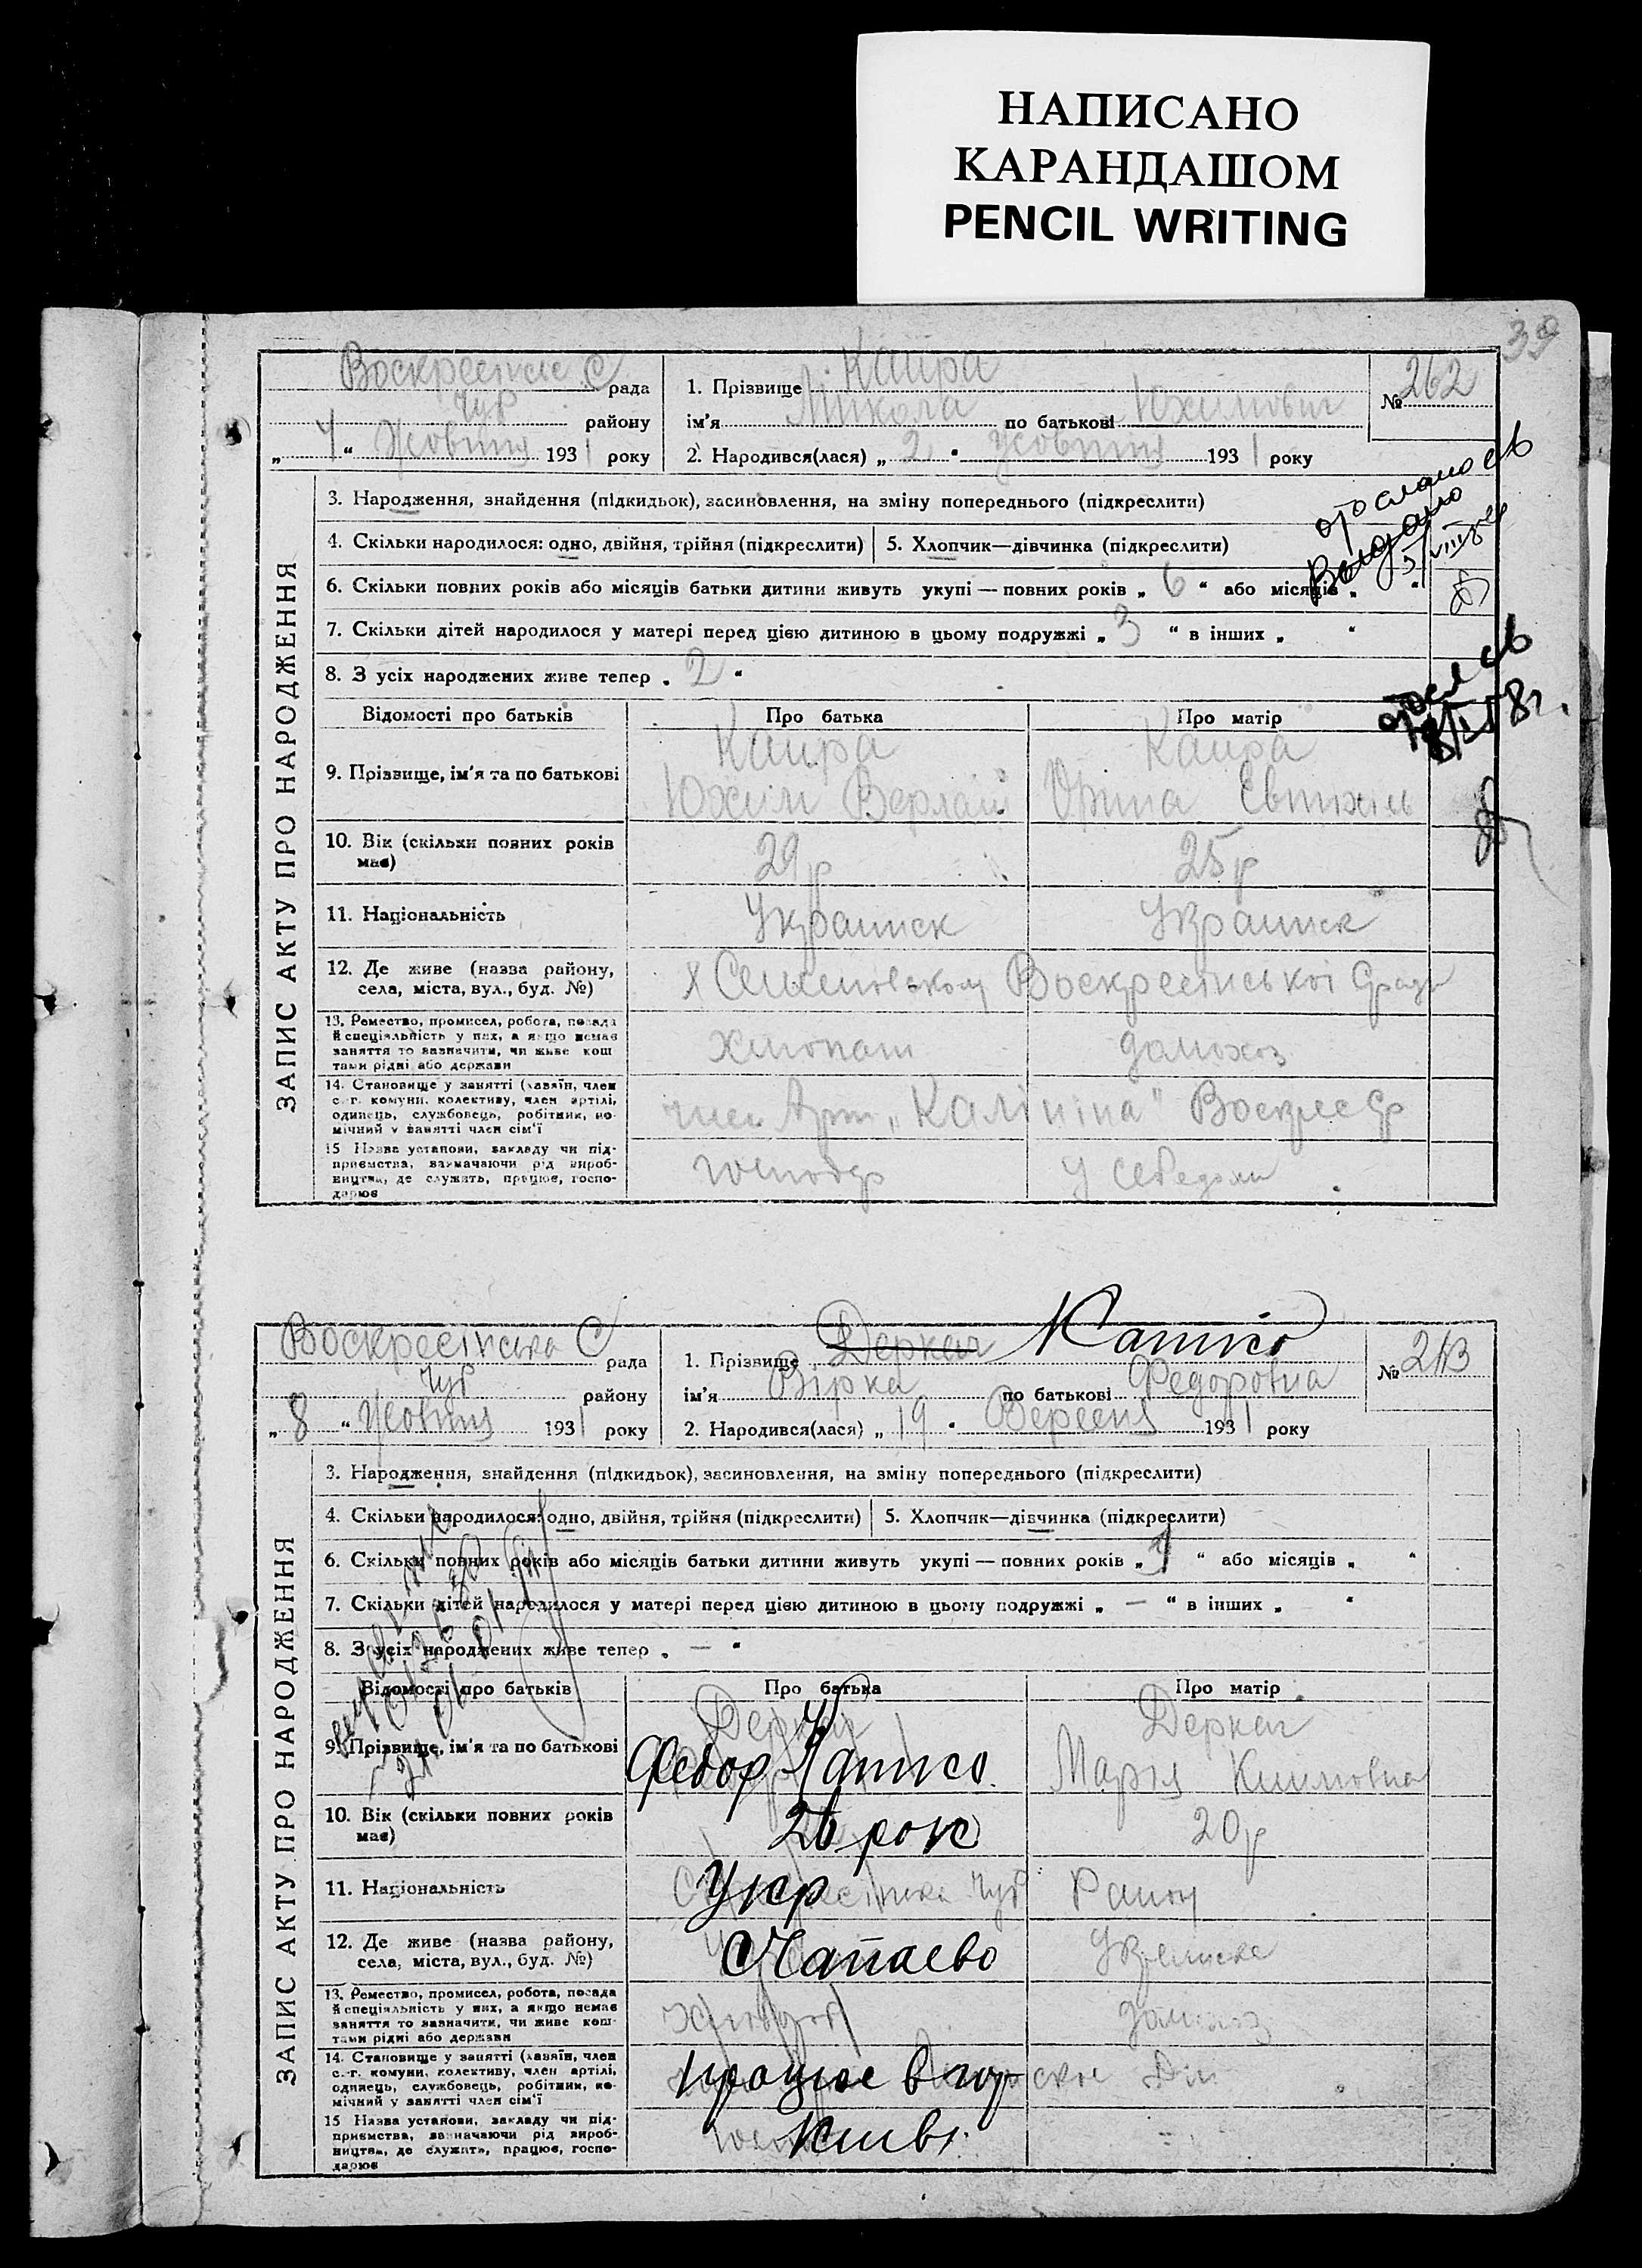 НАПИСАНО
КАРАНДАШОМ
PENCIL WRITING
39
Воскресінське С рада
Чуб району
„ 4 “ Жовтня 1931 року
1. Прізвище Каира
ім'я Микола по батькові Юхимович
2. Народився(лася) „ 2 “ Жовтня 1931 року
№ 262
ЗАПИС АКТУ ПРО НАРОДЖЕННЯ
3. Народження, знайдення (підкидьок), засиновлення, на зміну попереднього (підкреслити)
4. Скільки народилося: одно, двійня, трійня (підкреслити) 5. Хлопчик—дівчинка (підкреслити)
6. Скільки повних років або місяців батьки дитини живуть укупі — повних років „ 6 “ або місяців „ “
7. Скільки дітей народилося у матері перед цією дитиною в цьому подружжі „ 3 “ в інших „ “
8. З усіх народжених живе тепер „ 2 “
отослано св
Выдано
отосл св
Відомості про батьків Про батька Про матір
9. Прізвище, ім'я та по батькові
Каира
Юхим Верлай
Каира
Орина Євтихіи
10. Вік (скільки повних років має) 29 р 25 р
11. Національність Украинск Украинск
12. Де живе (назва району, села, міста, вул., буд. №) Х Семеновском Воскресінської Сради
13. Ремество, промисел, робота, посада й спеціяльність у них, а якщо немає заняття то зазначити, чи живе коштами рідні або держави
домохоз
14. Становище у занятті (хазяїн, член с.-г. комуни, колективу, член артілі, одинець, службовець, робітник, помічний у занятті член сім'ї
член Арт „Калініна“ Воскрес Ср
15 Назва установи, закладу чи підприємства, зазначаючи рід виробництва, де служить, працює, господарює
господр у себе дома
Воскресінська С рада
Чуб району
„ 8 “ Жовтня 1931 року
1. Прізвище Деркач Капико
ім'я Вірка по батькові Федоровна
2. Народився(лася) „ 19 “ Вересня 1931 року
№ 263
ЗАПИС АКТУ ПРО НАРОДЖЕННЯ
3. Народження, знайдення (підкидьок), засиновлення, на зміну попереднього (підкреслити)
4. Скільки народилося: одно, двійня, трійня (підкреслити) 5. Хлопчик—дівчинка (підкреслити)
6. Скільки повних років або місяців батьки дитини живуть укупі — повних років „ 1 “ або місяців „ “
7. Скільки дітей народилося у матері перед цією дитиною в цьому подружжі „ — “ в інших „ “
8. З усіх народжених живе тепер „ — “
Відомості про батьків Про батька Про матір
9. Прізвище, ім'я та по батькові
Деркач
Федор Капико
Деркач
Марія Климовна
10. Вік (скільки повних років має) 26 рок 20 р
11. Національність Укр Чуб Району
12. Де живе (назва району, села, міста, вул., буд. №) с Чапаево Украинска
13. Ремество, промисел, робота, посада й спеціяльність у них, а якщо немає заняття то зазначити, чи живе коштами рідні або держави
домохоз
14. Становище у занятті (хазяїн, член с.-г. комуни, колективу, член артілі, одинець, службовець, робітник, помічний у занятті член сім'ї
працює в гор
15 Назва установи, закладу чи підприємства, зазначаючи рід виробництва, де служить, працює, господарює
Київі